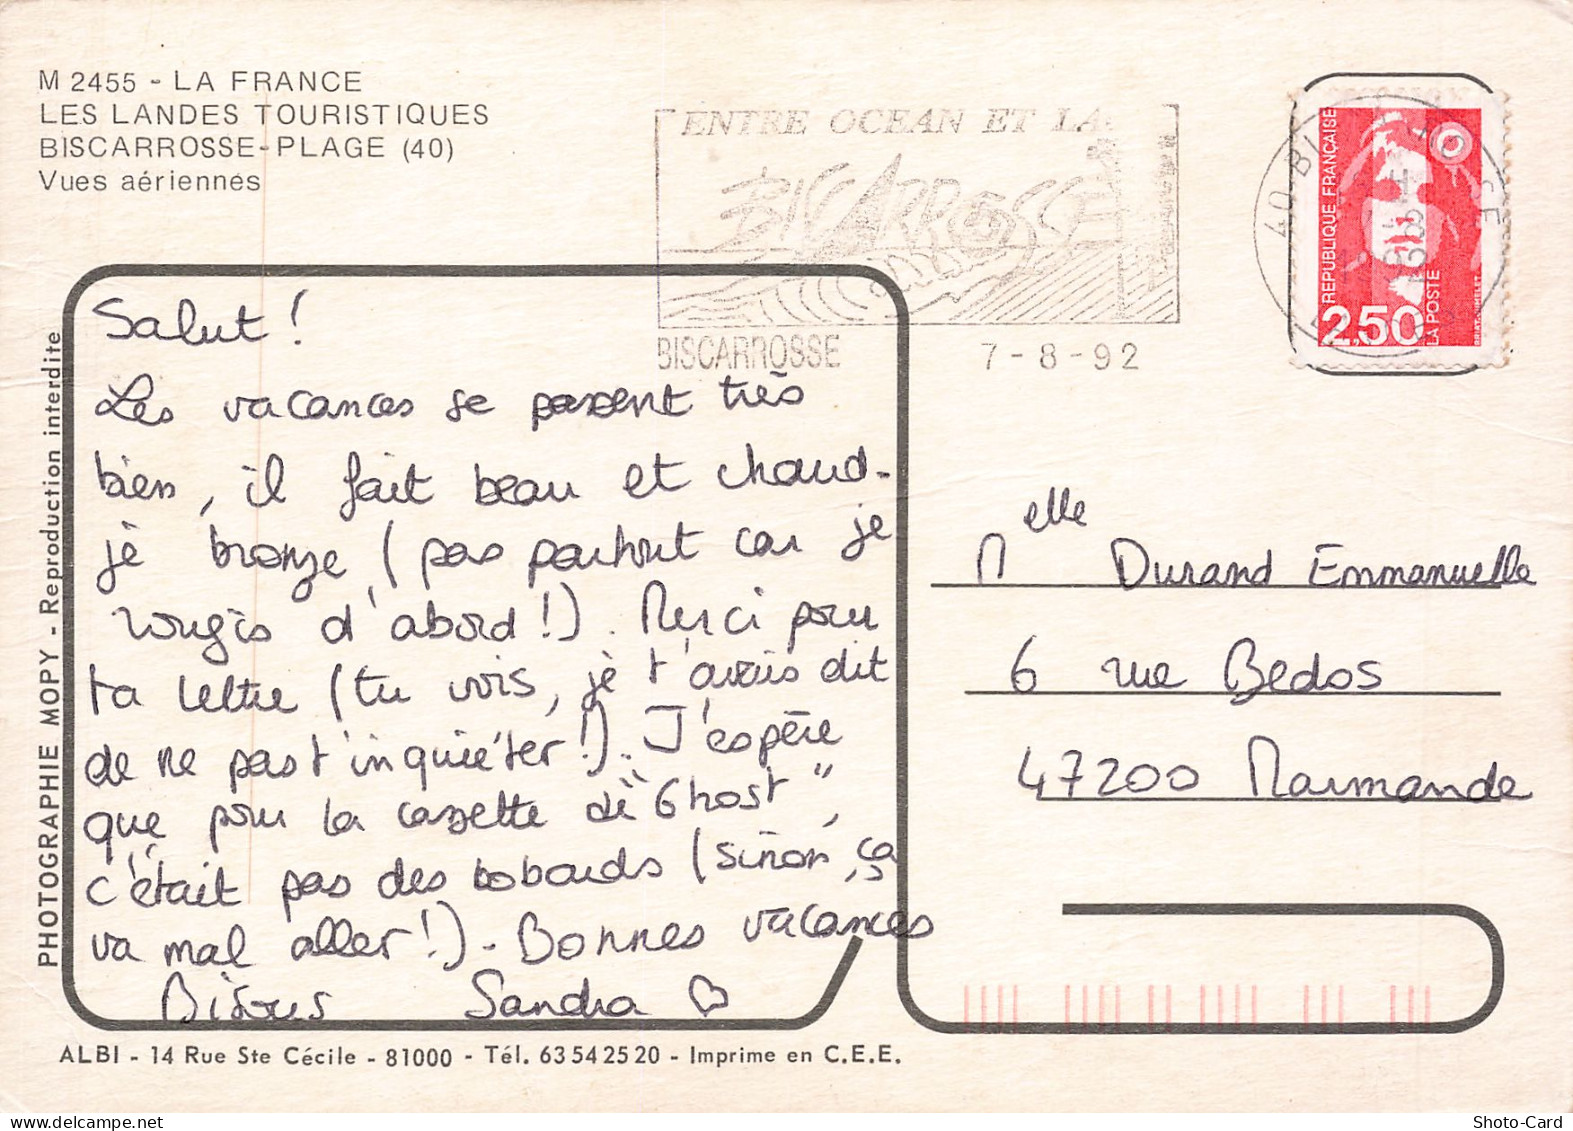 M 2455 - LA FRANCE
LES LANDES TOURISTIQUES
BISCARROSSE-PLAGE (40)
Vues aériennes
ENTRE OCEAN ET LA
BISCARROSSE
BISCARROSSE
7-8-92
40 BI
REPUBLIQUE FRANÇAISE
2,50
LA POSTE
PHOTOGRAPHIE MOPY - Reproduction interdite
Salut !
Les vacances se passent très
bien, il fait beau et chaud-
je bronze (pas partout car je
rougis d'abord !). Merci pour
ta lettre (tu vois, je t'avais dit
de ne pas t'inquiéter !). J'espère
que pour la cassette de "Ghost",
c'était pas des bobards (sinon, ça
va mal aller !) - Bonnes vacances
Bisous Sandra
Melle Durand Emmanuelle
6 rue Bedos
47200 Marmande
ALBI - 14 Rue Ste Cécile - 81000 - Tél. 63 54 25 20 - Imprime en C.E.E.
Shoto-Card